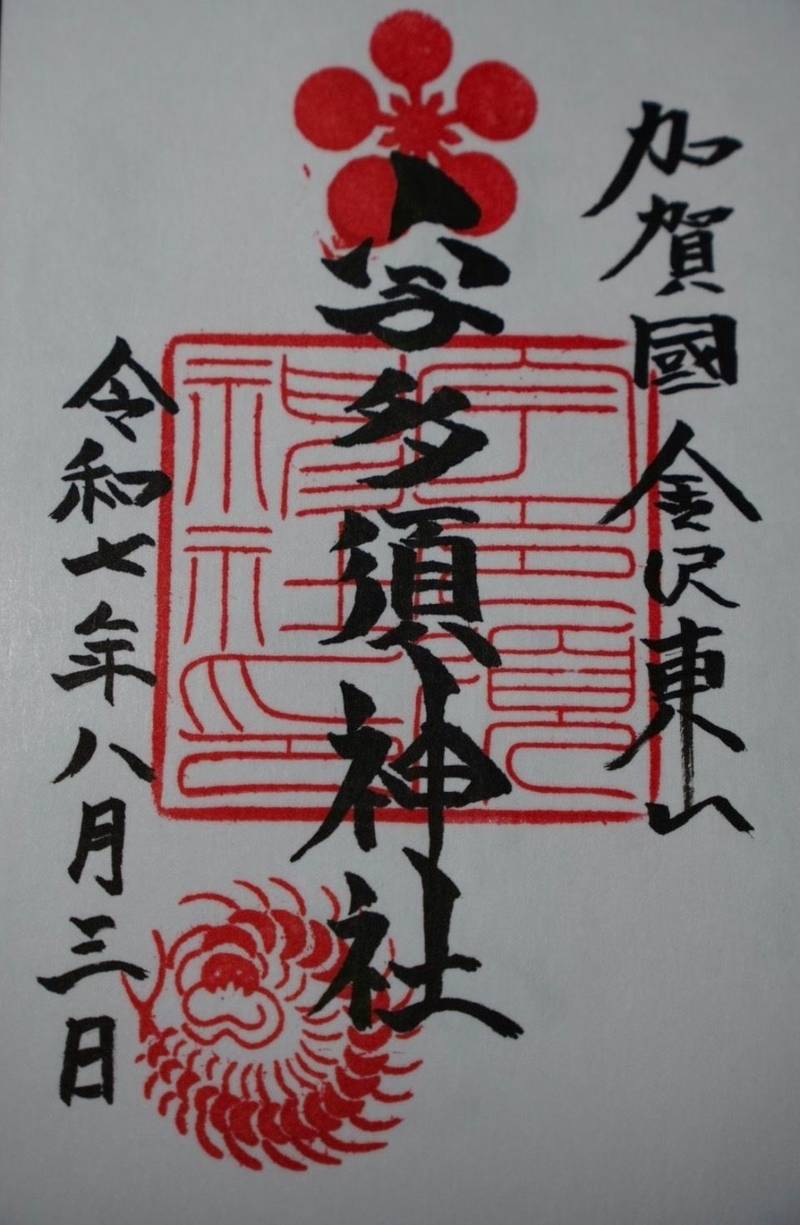 加賀國金沢東山
宇多須神社
令和七年八月三日
神社印